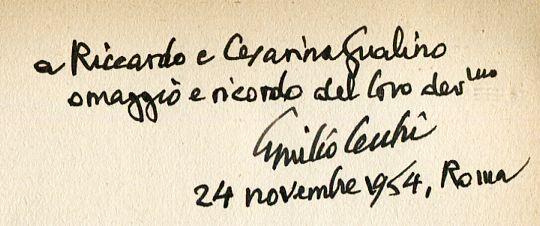 a Riccardo e Cesarina Gualino
omaggio e ricordo del loro dev.mo
Emilio Cecchi
24 novembre 1954, Roma